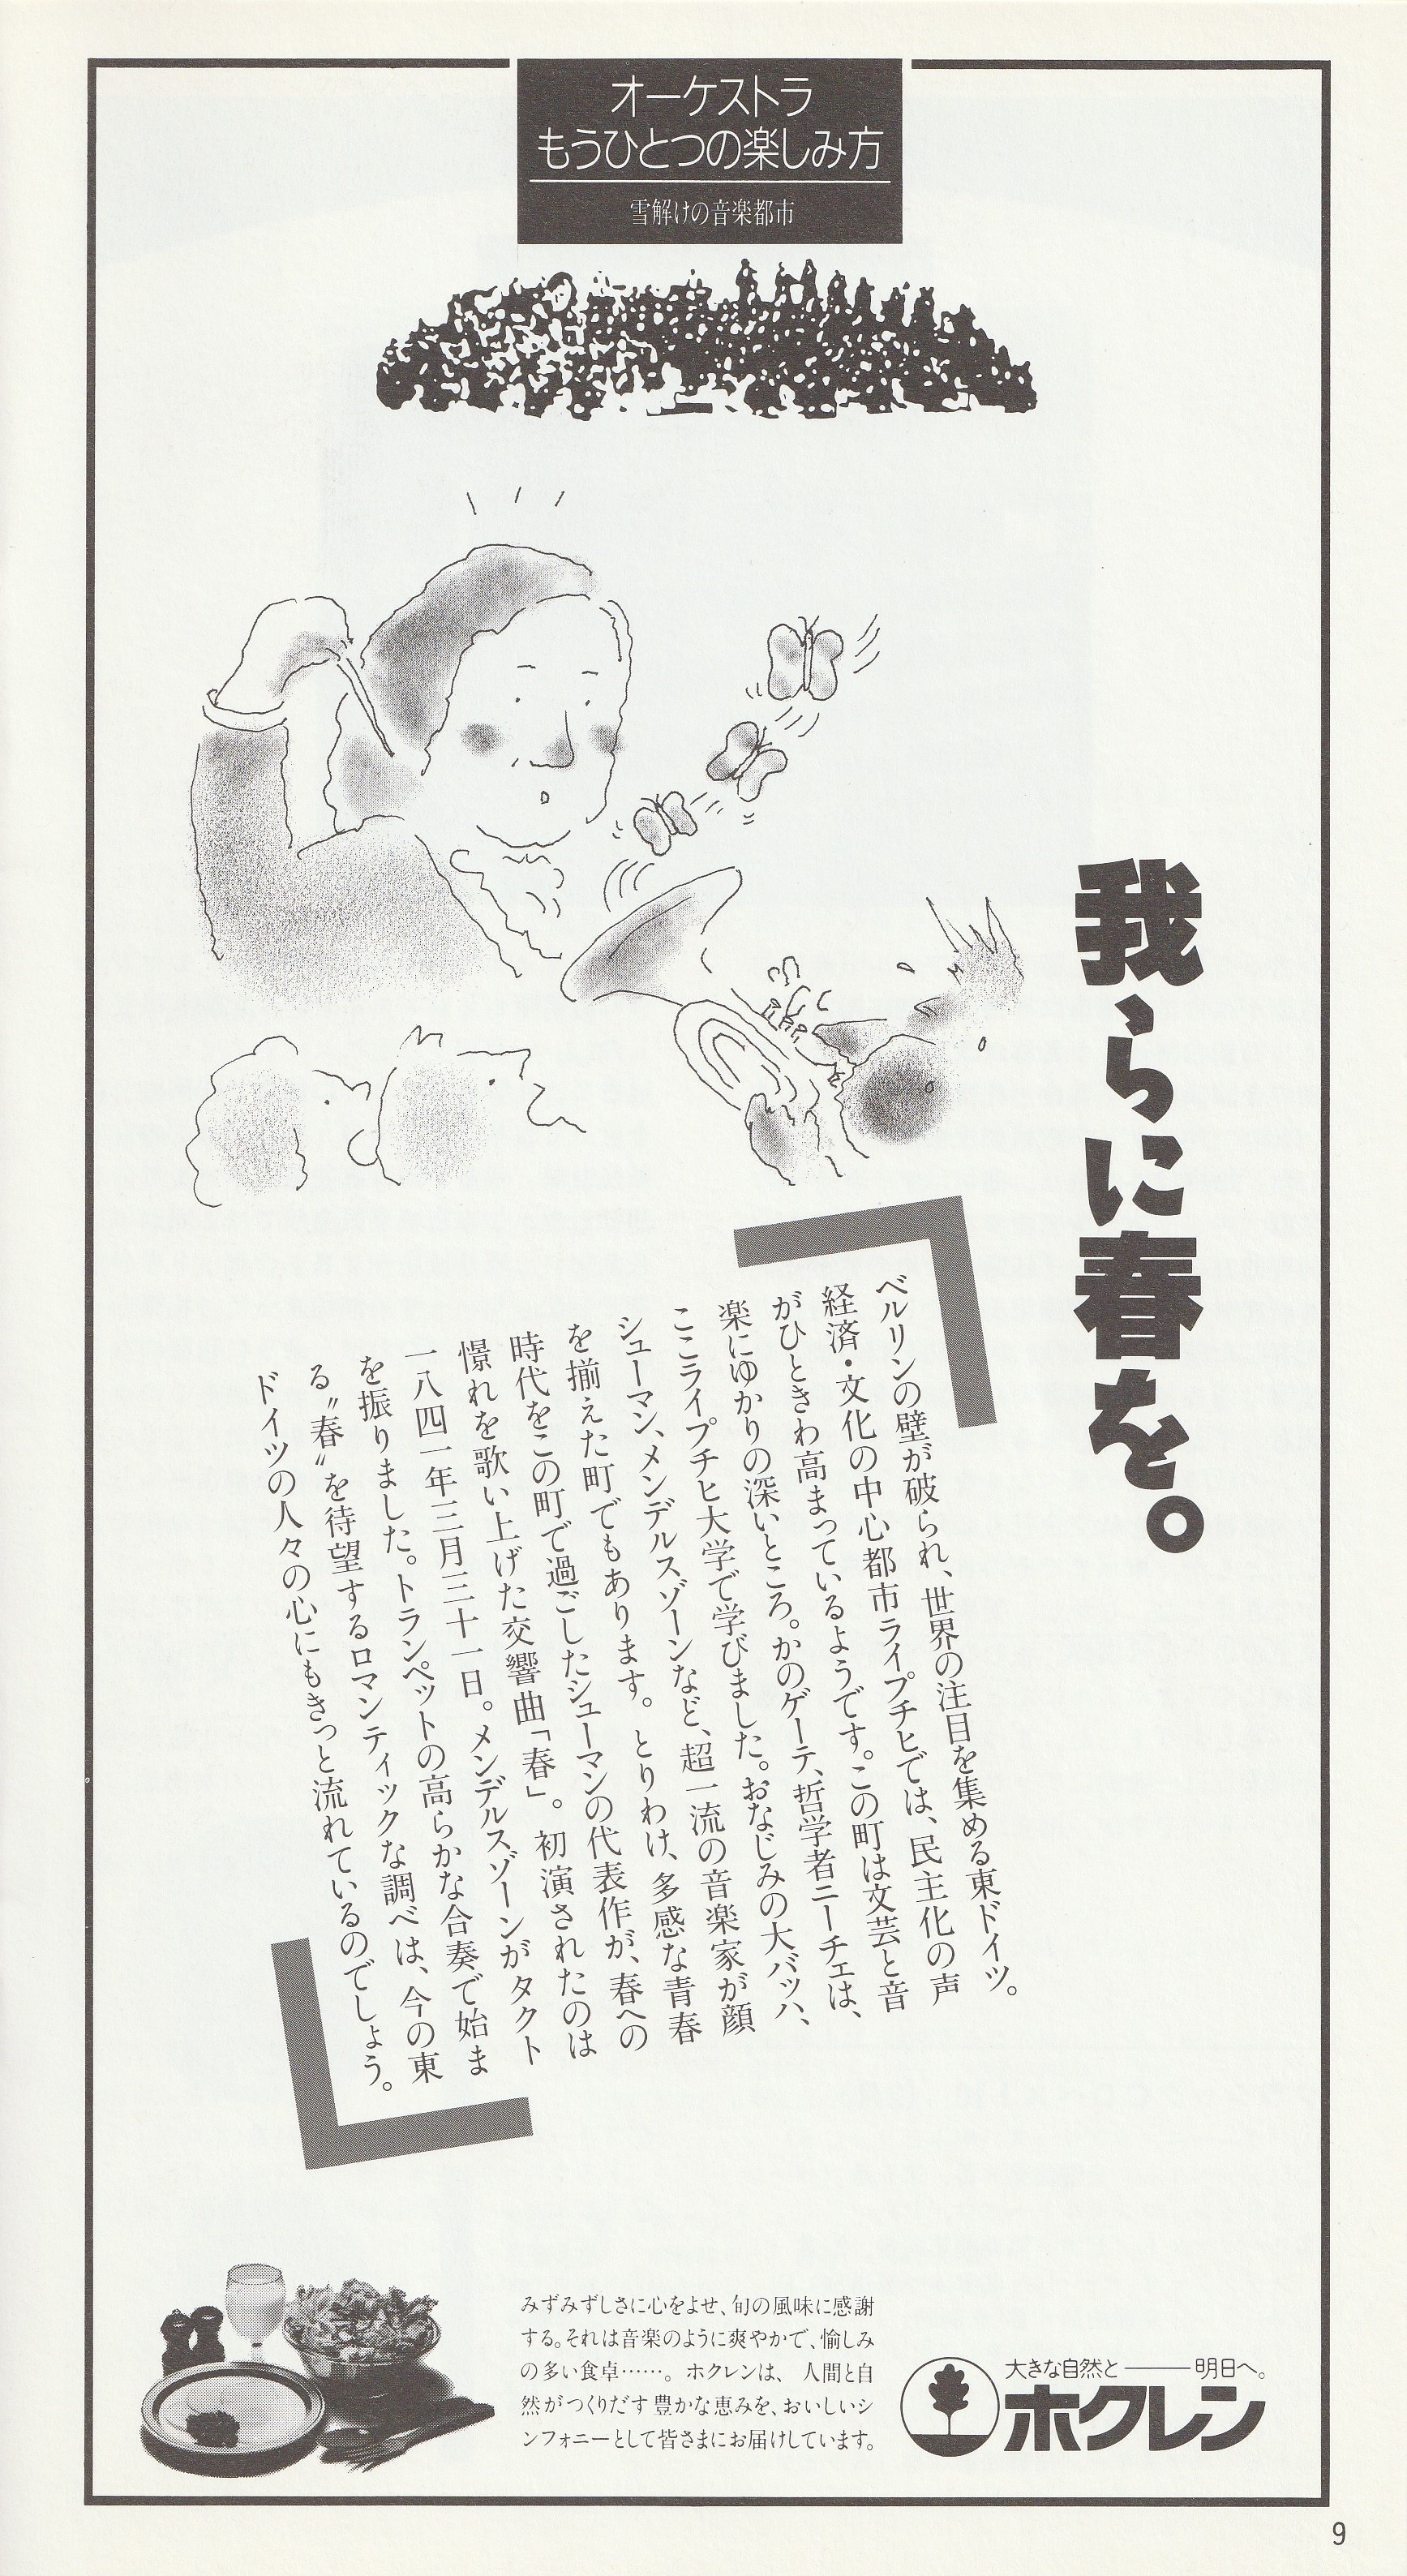 オーケストラ
もうひとつの楽しみ方
雪解けの音楽都市
我らに春を。
ベルリンの壁が破られ、世界の注目を集める東ドイツ。
経済・文化の中心都市ライプチヒでは、民主化の声
がひときわ高まっているようです。この町は文芸と音
楽にゆかりの深いところ。かのゲーテ、哲学者ニーチェは、
ここライプチヒ大学で学びました。おなじみの大バッハ、
シューマン、メンデルスゾーンなど、超一流の音楽家が顔
を揃えた町でもあります。とりわけ、多感な青春
時代をこの町で過ごしたシューマンの代表作が、春への
憬れを歌い上げた交響曲「春」。初演されたのは
一八四一年三月三十一日。メンデルスゾーンがタクト
を振りました。トランペットの高らかな合奏で始ま
る〝春〟を待望するロマンティックな調べは、今の東
ドイツの人々の心にもきっと流れているのでしょう。
みずみずしさに心をよせ、旬の風味に感謝
する。それは音楽のように爽やかで、愉しみ
の多い食卓……。ホクレンは、人間と自
然がつくりだす豊かな恵みを、おいしいシ
ンフォニーとして皆さまにお届けしています。
大きな自然と――明日へ。
ホクレン
9